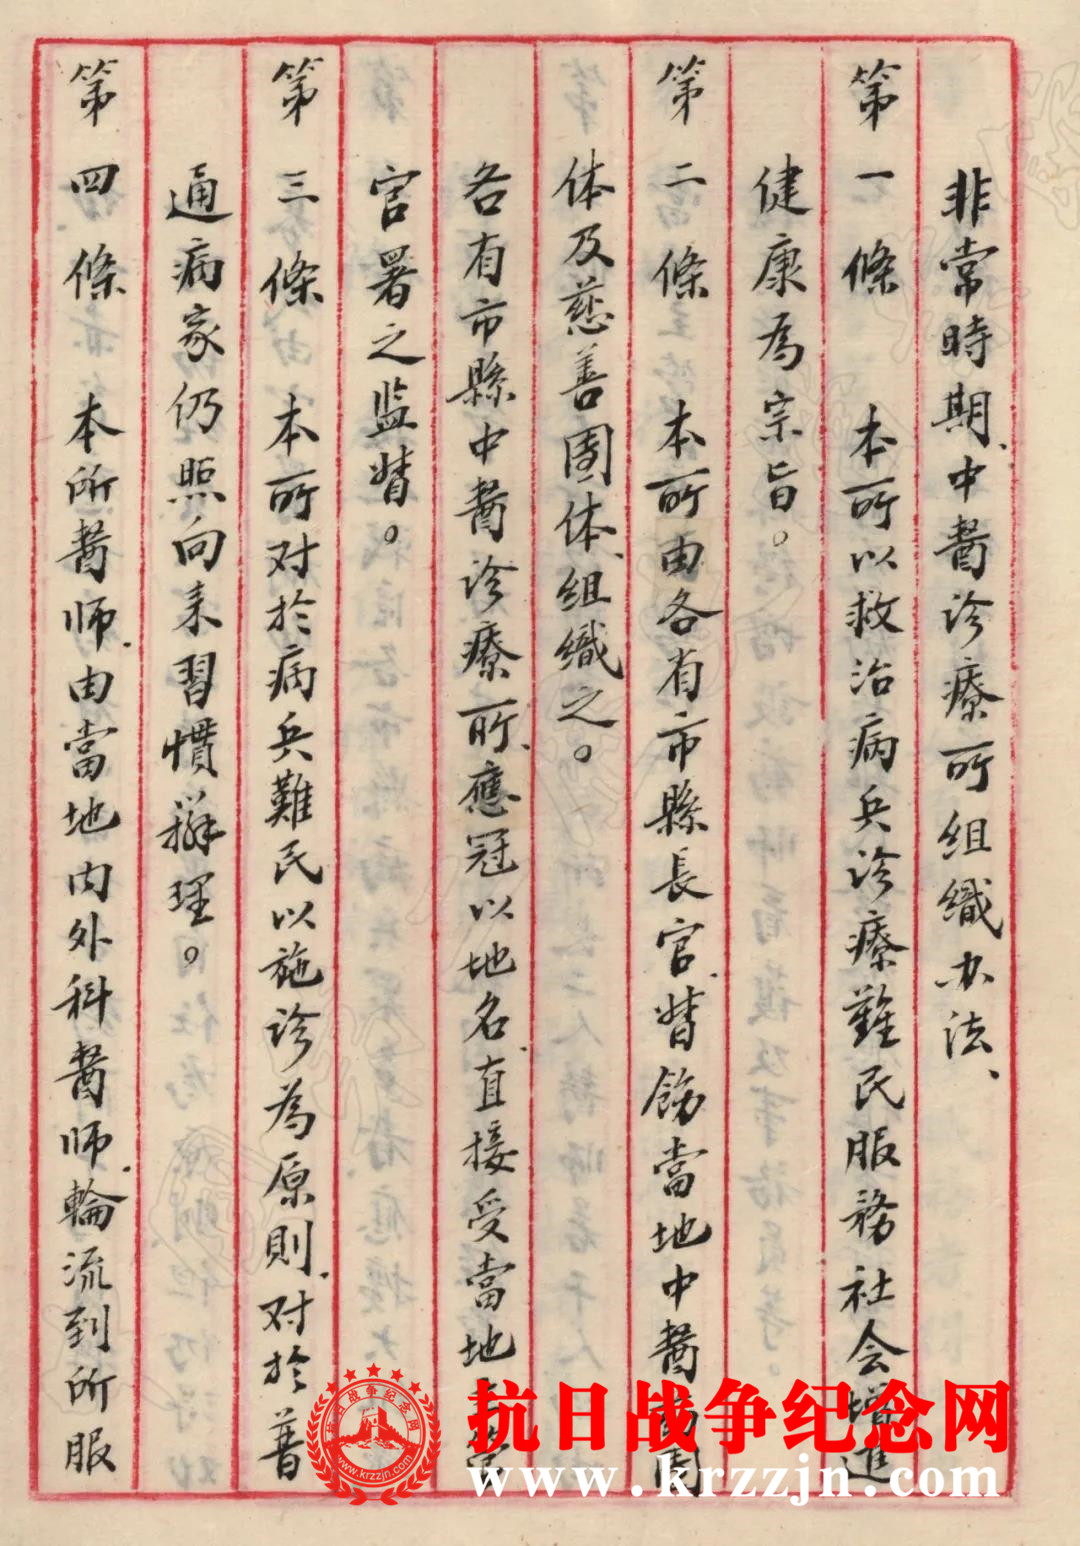 非常時期、中醫診療所組織办法、
第一條 本所以救治病兵診療難民服務社会增進
健康為宗旨。
第二條 本所由各有市縣長官、督飭當地中醫團
体及慈善團体、組織之。
各有市縣中醫診療所、應冠以地名、直接受當地主管
官署之监督。
第三條 本所对於病兵難民以施診為原則、对於普
通病家仍照向来習慣辦理。
第四條 本所醫師、由當地内外科醫師、輪流到所服
抗日战争纪念网
www.krzzjn.com
抗日战争纪念网
www.krzzjn.com